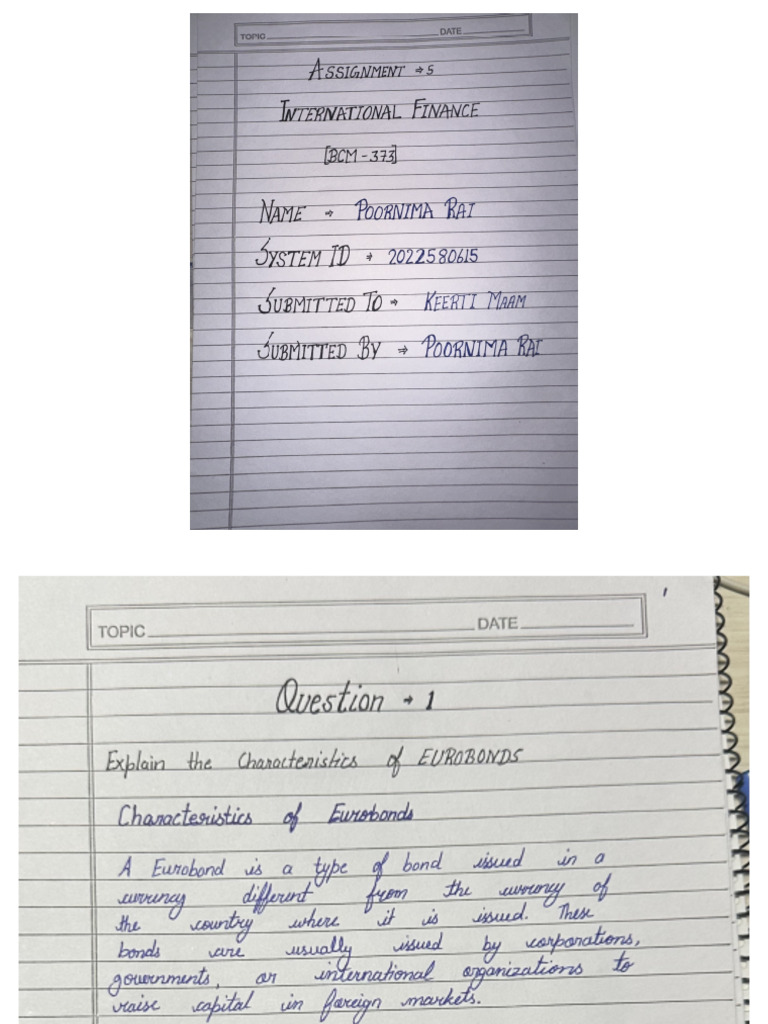 TOPIC DATE
ASSIGNMENT → 5
INTERNATIONAL FINANCE
[BCM - 373]
NAME → POORNIMA RAI
SYSTEM ID → 2022580615
SUBMITTED TO → KEERTI MAAM
SUBMITTED BY → POORNIMA RAI
TOPIC DATE
Question → 1
Explain the Characteristics of EUROBONDS
Characteristics of Eurobonds
A Eurobond is a type of bond issued in a
currency different from the currency of
the country where it is issued. These
bonds are usually issued by corporations,
governments, or international organizations to
raise capital in foreign markets.